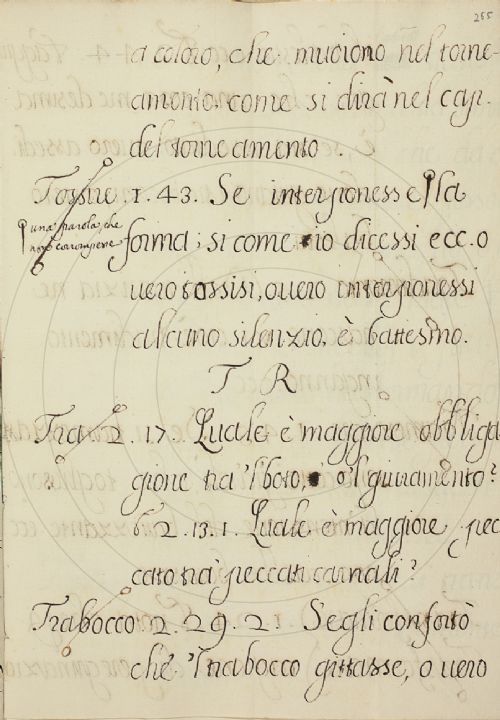 255
a coloro, che muoiono nel torne-
amento, come si dirà nel cap.
del torneamento.
Tossire. 1. 43. Se interponesse pla
una parola, che
non corrompere
forma; si come io dicessi ecc. o
uero tossisi, ouero interponessi
alcuno silenzio, è battesimo.
T R
Tra 2. 17. Quale è maggiore obbliga
gione tra 'l boto, o 'l giuramento?
62. 13. 1. Quale è maggiore pec
cato tra peccati carnali?
Trabocco 2. 29. 2. Segli confortò
che 'l trabocco gittasse, o uero